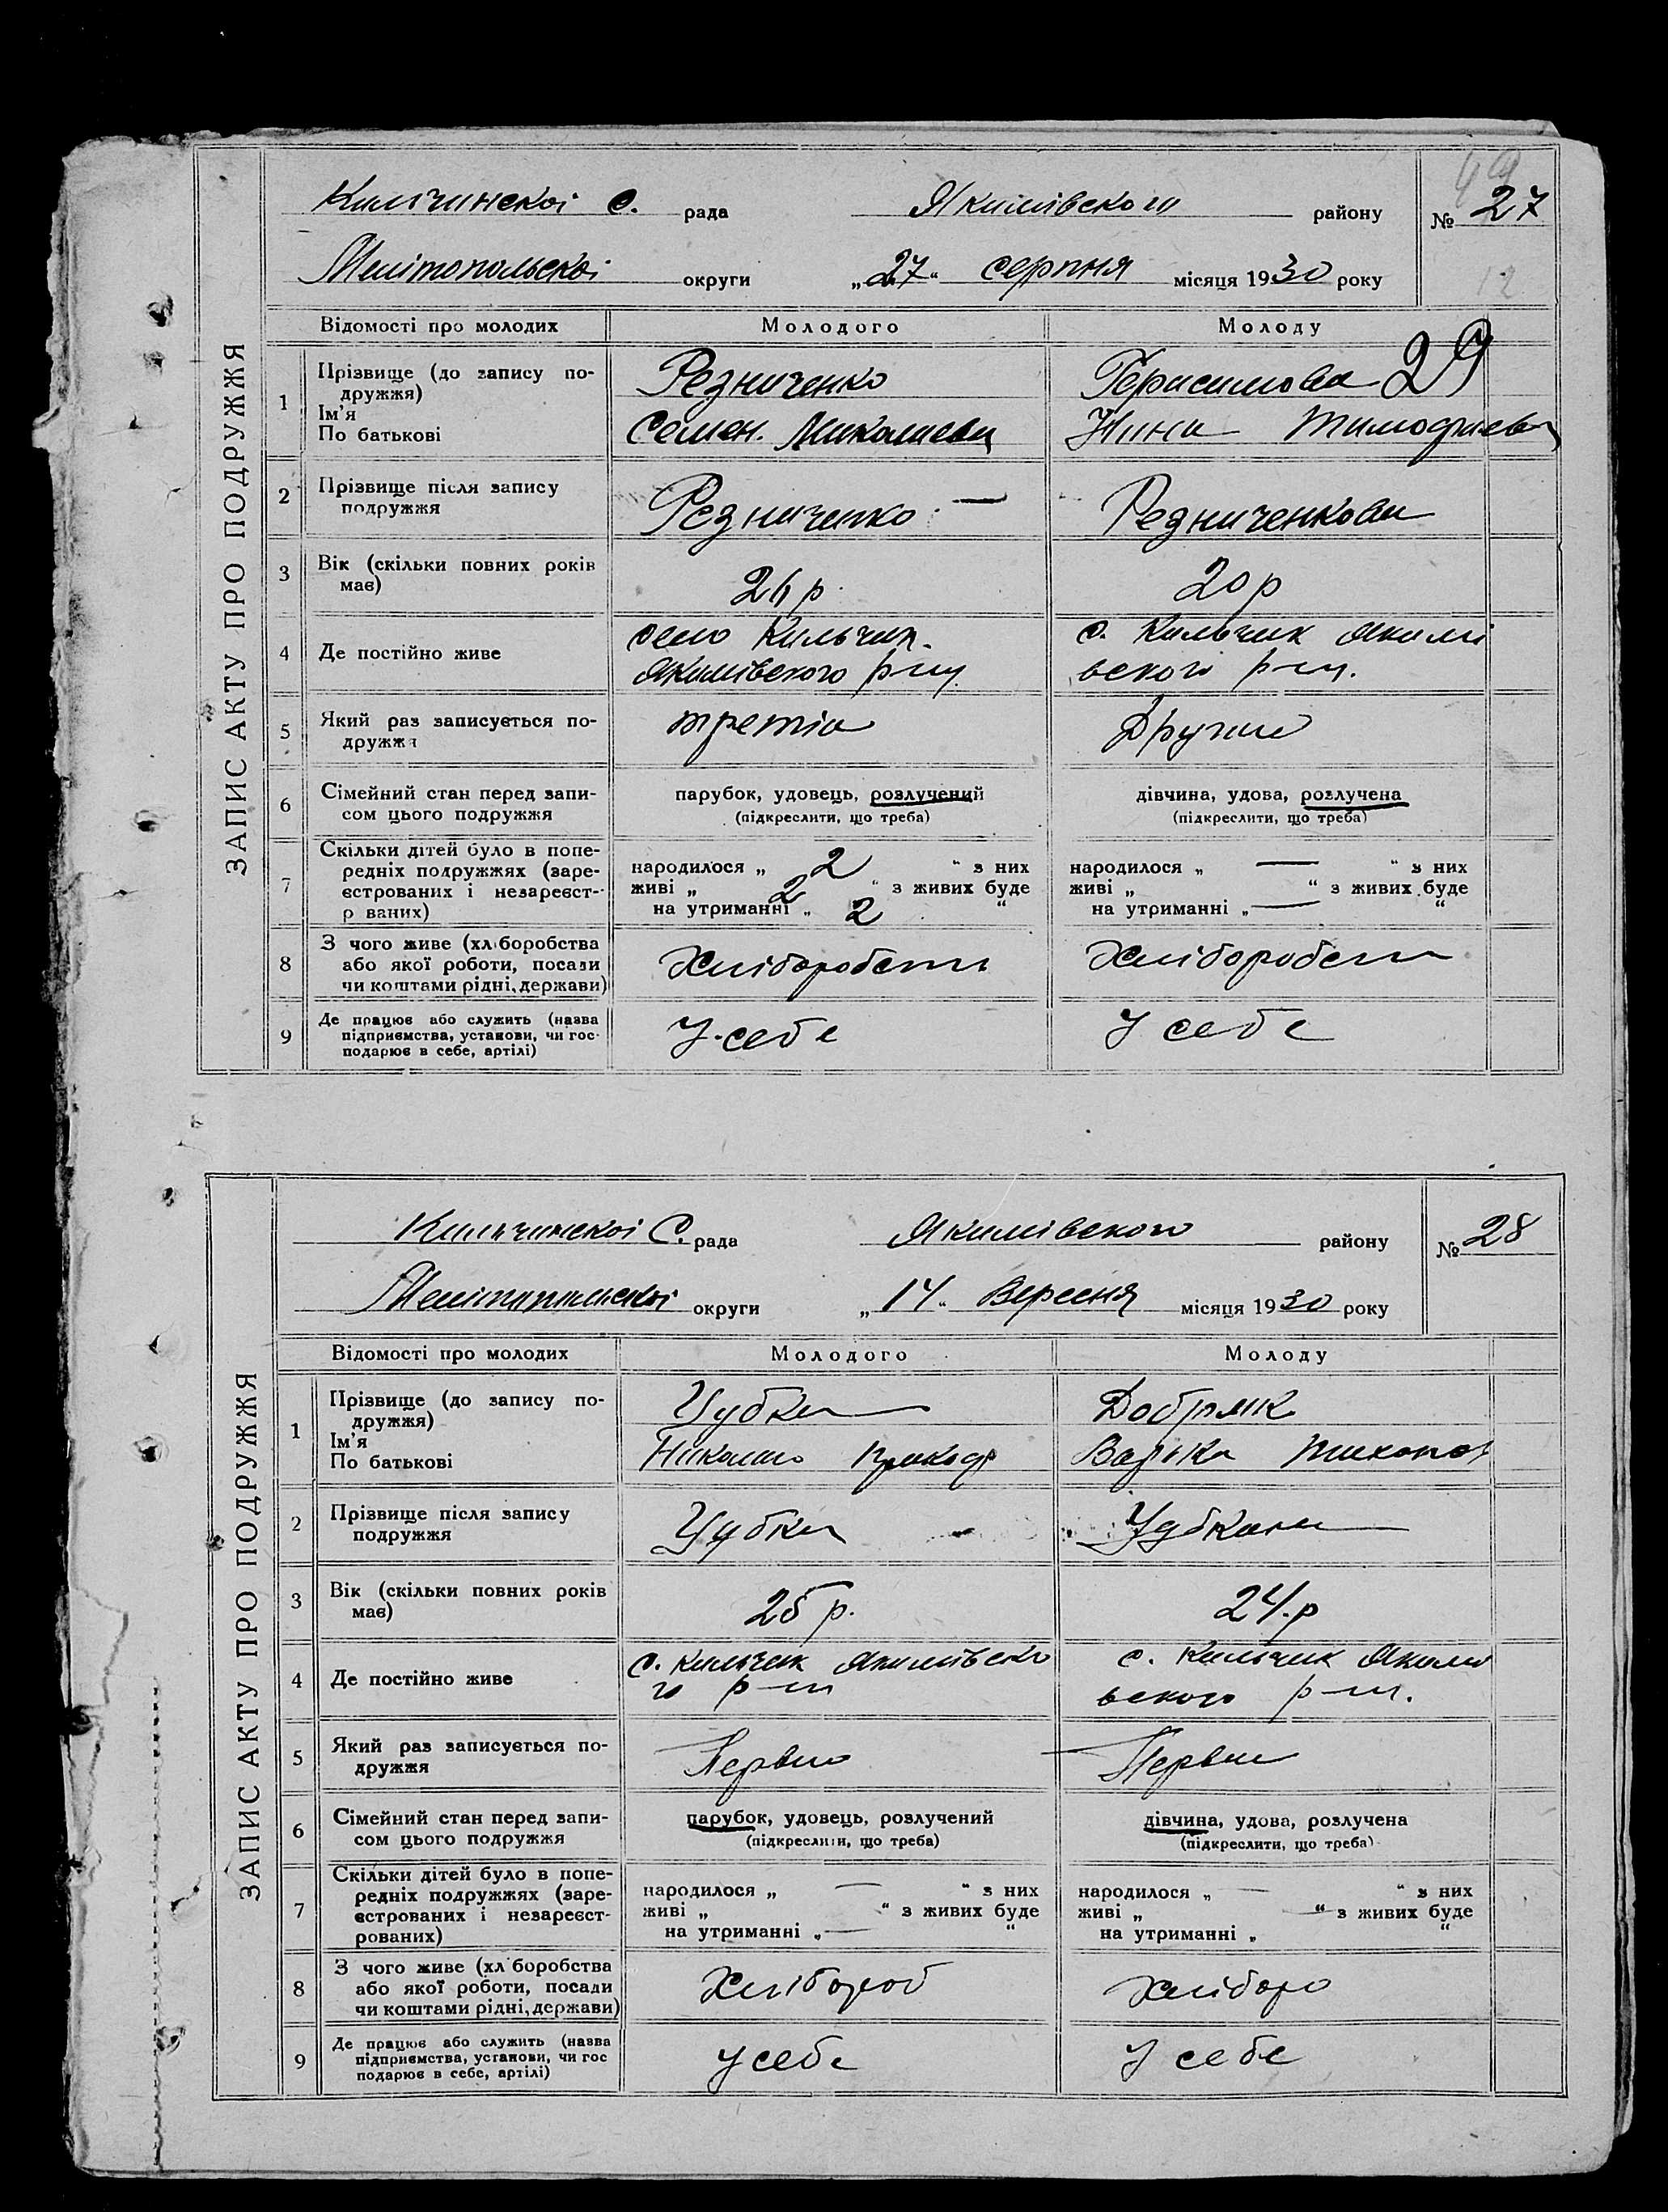 49
Кильчинскої с. рада Якимівского району № 27
Мелітопольскої округи „27“ серпня місяця 1930 року
12
ЗАПИС АКТУ ПРО ПОДРУЖЖЯ
Відомості про молодих Молодого Молоду
29
1 Прізвище (до запису по-
дружжя) Резниченко Герасимова
Ім'я
По батькові Семен. Миколаеви Нина Тимофиевн
2 Прізвище після запису
подружжя Резниченко — Резниченкова
3 Вік (скільки повних років
має) 26 р. 20 р
4 Де постійно живе
село Кильчик. с. Кильчик Якимі
Якимівского р-ну. вского р-н.
5 Який раз записується по-
дружжя третіа Други
6 Сімейний стан перед запи- парубок, удовець, розлучений дівчина, удова, розлучена
сом цього подружжя (підкреслити, що треба) (підкреслити, що треба)
7 Скільки дітей було в попе-
редніх подружжях (заре- народилося „ 2 “ з них народилося „ — “ з них
єстрованих і незареєст- живі „ 2 “ з живих буде живі „ “ з живих буде
р ваних) на утриманні „ 2 “ на утриманні „ — “
8 З чого живе (хл боробства
або якої роботи, посади Хлібороботи Хлібороботи
чи коштами рідні, держави)
9 Де працює або служить (назва
підприємства, установи, чи гос- У себе У себе
подарює в себе, артілі)
Кильчинскої С. рада Якимівского району № 28
Мелітопольскої округи „14“ Вересня місяця 1930 року
ЗАПИС АКТУ ПРО ПОДРУЖЖЯ
Відомості про молодих Молодого Молоду
1 Прізвище (до запису по-
дружжя) Цубка Добряк
Ім'я
По батькові Николаи Варька Тихонов
2 Прізвище після запису
подружжя Цубка
3 Вік (скільки повних років
має) 25 р. 24.р
4 Де постійно живе
с. Кильчик Якимівско с. Кильчик Якимі
го р-н вского р-н.
5 Який раз записується по-
дружжя Перви Перви
6 Сімейний стан перед запи- парубок, удовець, розлучений дівчина, удова, розлучена
сом цього подружжя (підкреслити, що треба) (підкреслити, що треба)
7 Скільки дітей було в попе-
редніх подружжях (заре- народилося „ — “ з них народилося „ — “ з них
єстрованих і незареєст- живі „ “ з живих буде живі „ — “ з живих буде
рованих) на утриманні „ — “ на утриманні „ “
8 З чого живе (хл боробства
або якої роботи, посади Хлібороб Хліборо
чи коштами рідні, держави)
9 Де працює або служить (назва
підприємства, установи, чи гос у себе У себе
подарює в себе, артілі)